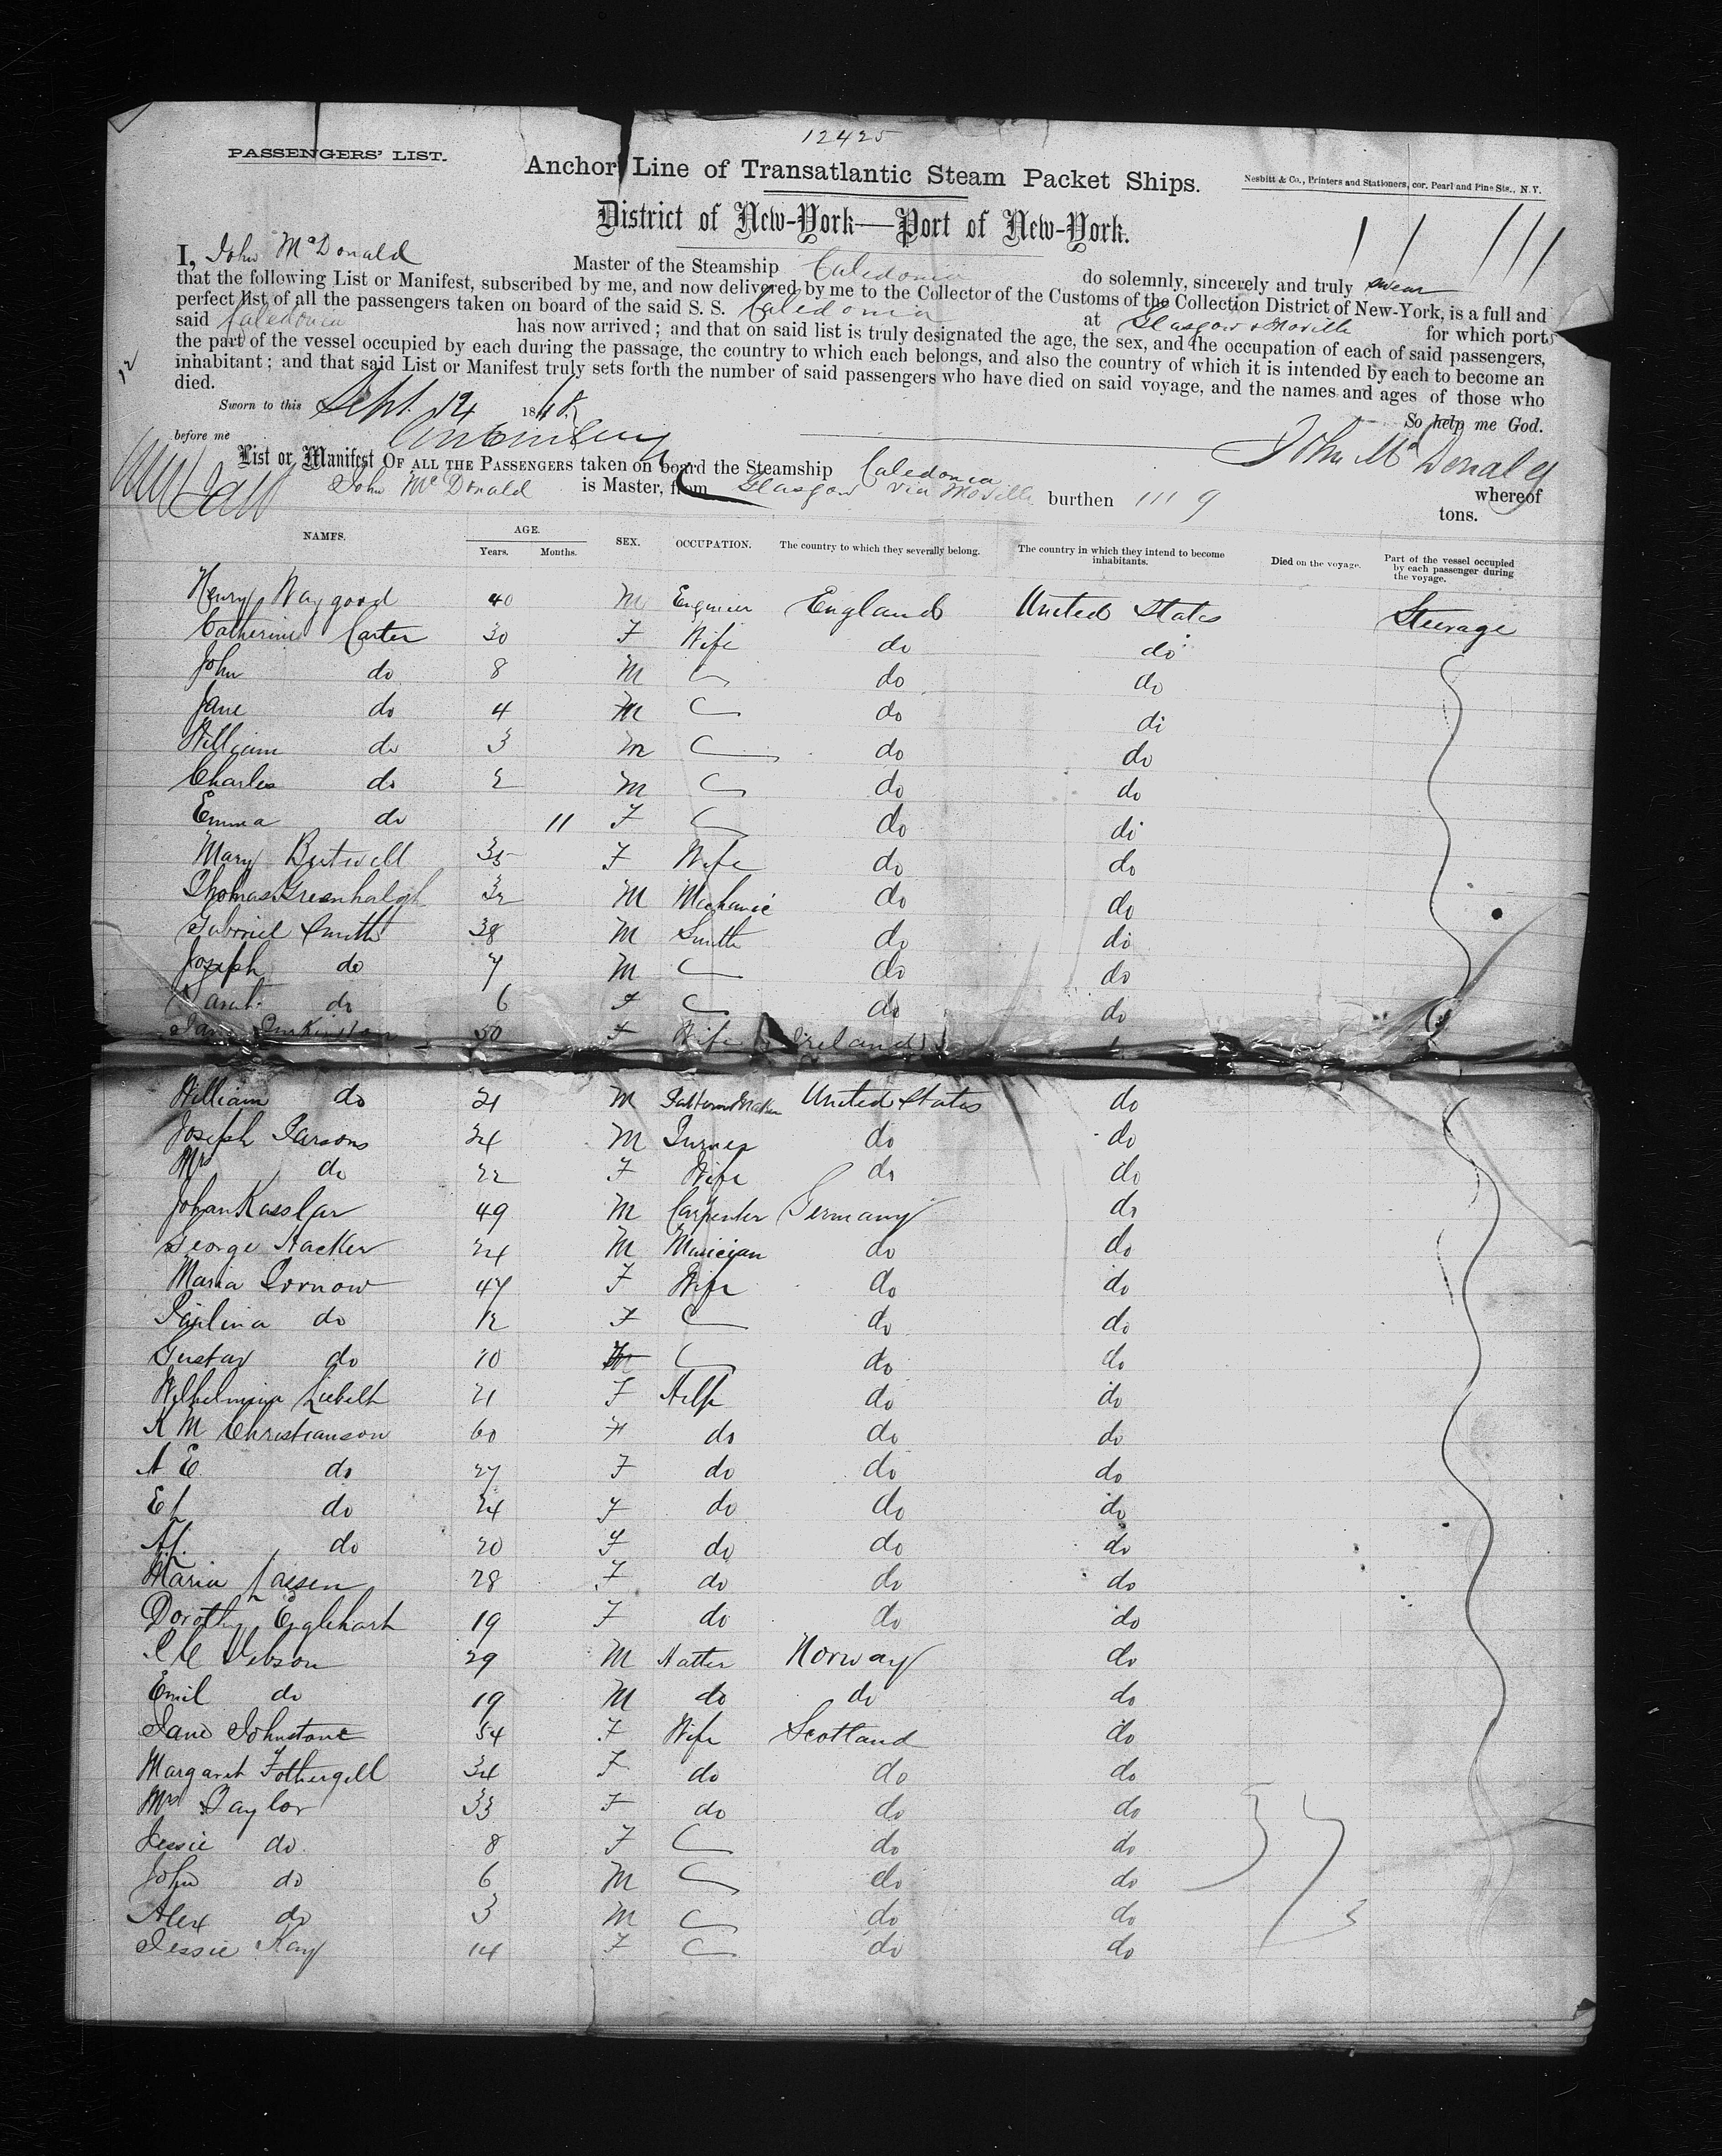 12425
PASSENGERS' LIST.
Anchor Line of Transatlantic Steam Packet Ships.
Nesbitt & Co., Printers and Stationers, cor. Pearl and Pine Sts., N.Y.
District of New-York—Port of New-York.
I, John McDonald Master of the Steamship Caledonia do solemnly, sincerely and truly swear
that the following List or Manifest, subscribed by me, and now delivered by me to the Collector of the Customs of the Collection District of New-York, is a full and
perfect list of all the passengers taken on board of the said S. S. Caledonia at Glasgow & Moville for which ports
said Caledonia has now arrived; and that on said list is truly designated the age, the sex, and the occupation of each of said passengers,
the part of the vessel occupied by each during the passage, the country to which each belongs, and also the country of which it is intended by each to become an
inhabitant; and that said List or Manifest truly sets forth the number of said passengers who have died on said voyage, and the names and ages of those who
died. So help me God.
Sworn to this Sept. 18
before me John McDonald
List or Manifest OF ALL THE PASSENGERS taken on board the Steamship Caledonia whereof
John McDonald is Master, from Glasgow via Moville burthen 1119 tons.
NAMES. AGE. SEX. OCCUPATION. The country to which they severally belong. The country in which they intend to become inhabitants. Died on the voyage. Part of the vessel occupied by each passenger during the voyage.
Years. Months.
Henry Waygood 40 M Engineer England United States Steerage
Catherine Carter 30 F Wife do do
John do 8 M do do
Jane do 4 M do do
William do 3 M do do
Charles do 2 M do do
Emma do 11 F do do
Mary Butwell 35 F Wife do do
Thomas Greenhalgh 32 M Mechanic do do
Gabriel Smith 38 M Smith do do
Joseph do 7 M do do
Sarah do 6 F do do
50 F Wife Ireland
William do 21 M Pattern Maker United States do
Joseph Parsons 24 M Turner do do
Mrs do 22 F Wife do do
Johan Kasslar 49 M Carpenter Germany do
George Hacker 24 M Musician do do
Maria Pornow 47 F Wife do do
Paulina do 12 F do do
Gustav do 10 M do do
Wilhelmina Liebelt 21 F Help do do
K M Christianson 60 F do do do
A E. do 27 F do do do
E L do 24 F do do do
A L. do 20 F do do do
Maria 28 F do do do
Dorothy Englehart 19 F do do do
29 M Hatter Norway do
Emil do 19 M do do do
Jane Johnstone 54 F Wife Scotland do
Margaret Fothergill 34 F do do do
Mrs Taylor 33 F do do do
Jessie do 8 F do do
John do 6 M do do
Alex do 3 M do do
Jessie Kay 14 F do do